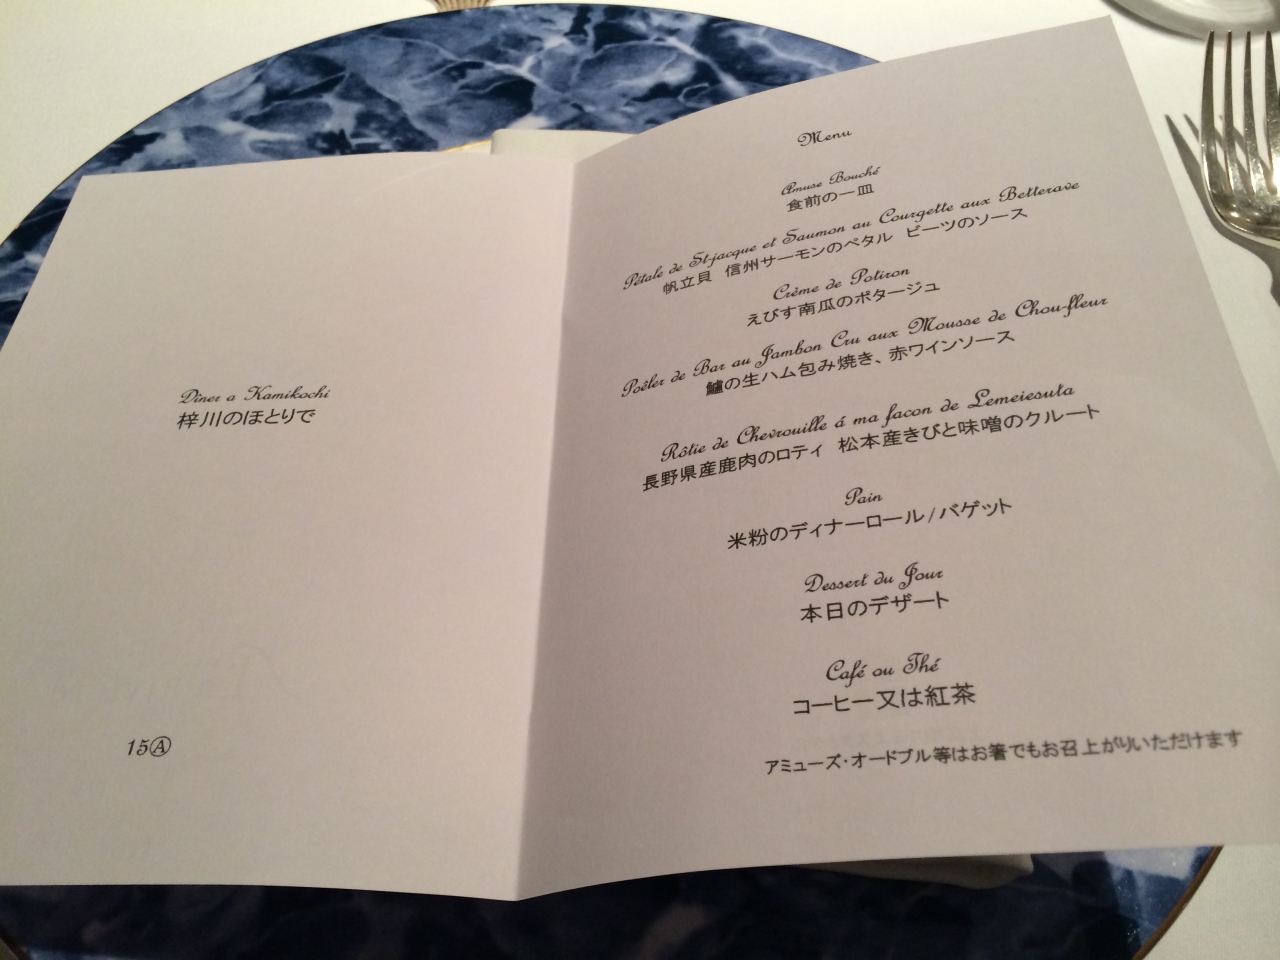 Dîner a Kamikochi
梓川のほとりで
15Ⓐ
Menu
Amuse Bouché
食前の一皿
Pétale de St-jacque et Saumon au Courgette aux Betterave
帆立貝 信州サーモンのペタル ビーツのソース
Crême de Potiron
えびす南瓜のポタージュ
Poêler de Bar au Jambon Cru aux Mousse de Chou-fleur
鱸の生ハム包み焼き、赤ワインソース
Rôtie de Chevrouille á ma facon de Lemeiesuta
長野県産鹿肉のロティ 松本産きびと味噌のクルート
Pain
米粉のディナーロール/バゲット
Dessert du Jour
本日のデザート
Café ou Thé
コーヒー又は紅茶
アミューズ・オードブル等はお箸でもお召上がりいただけます